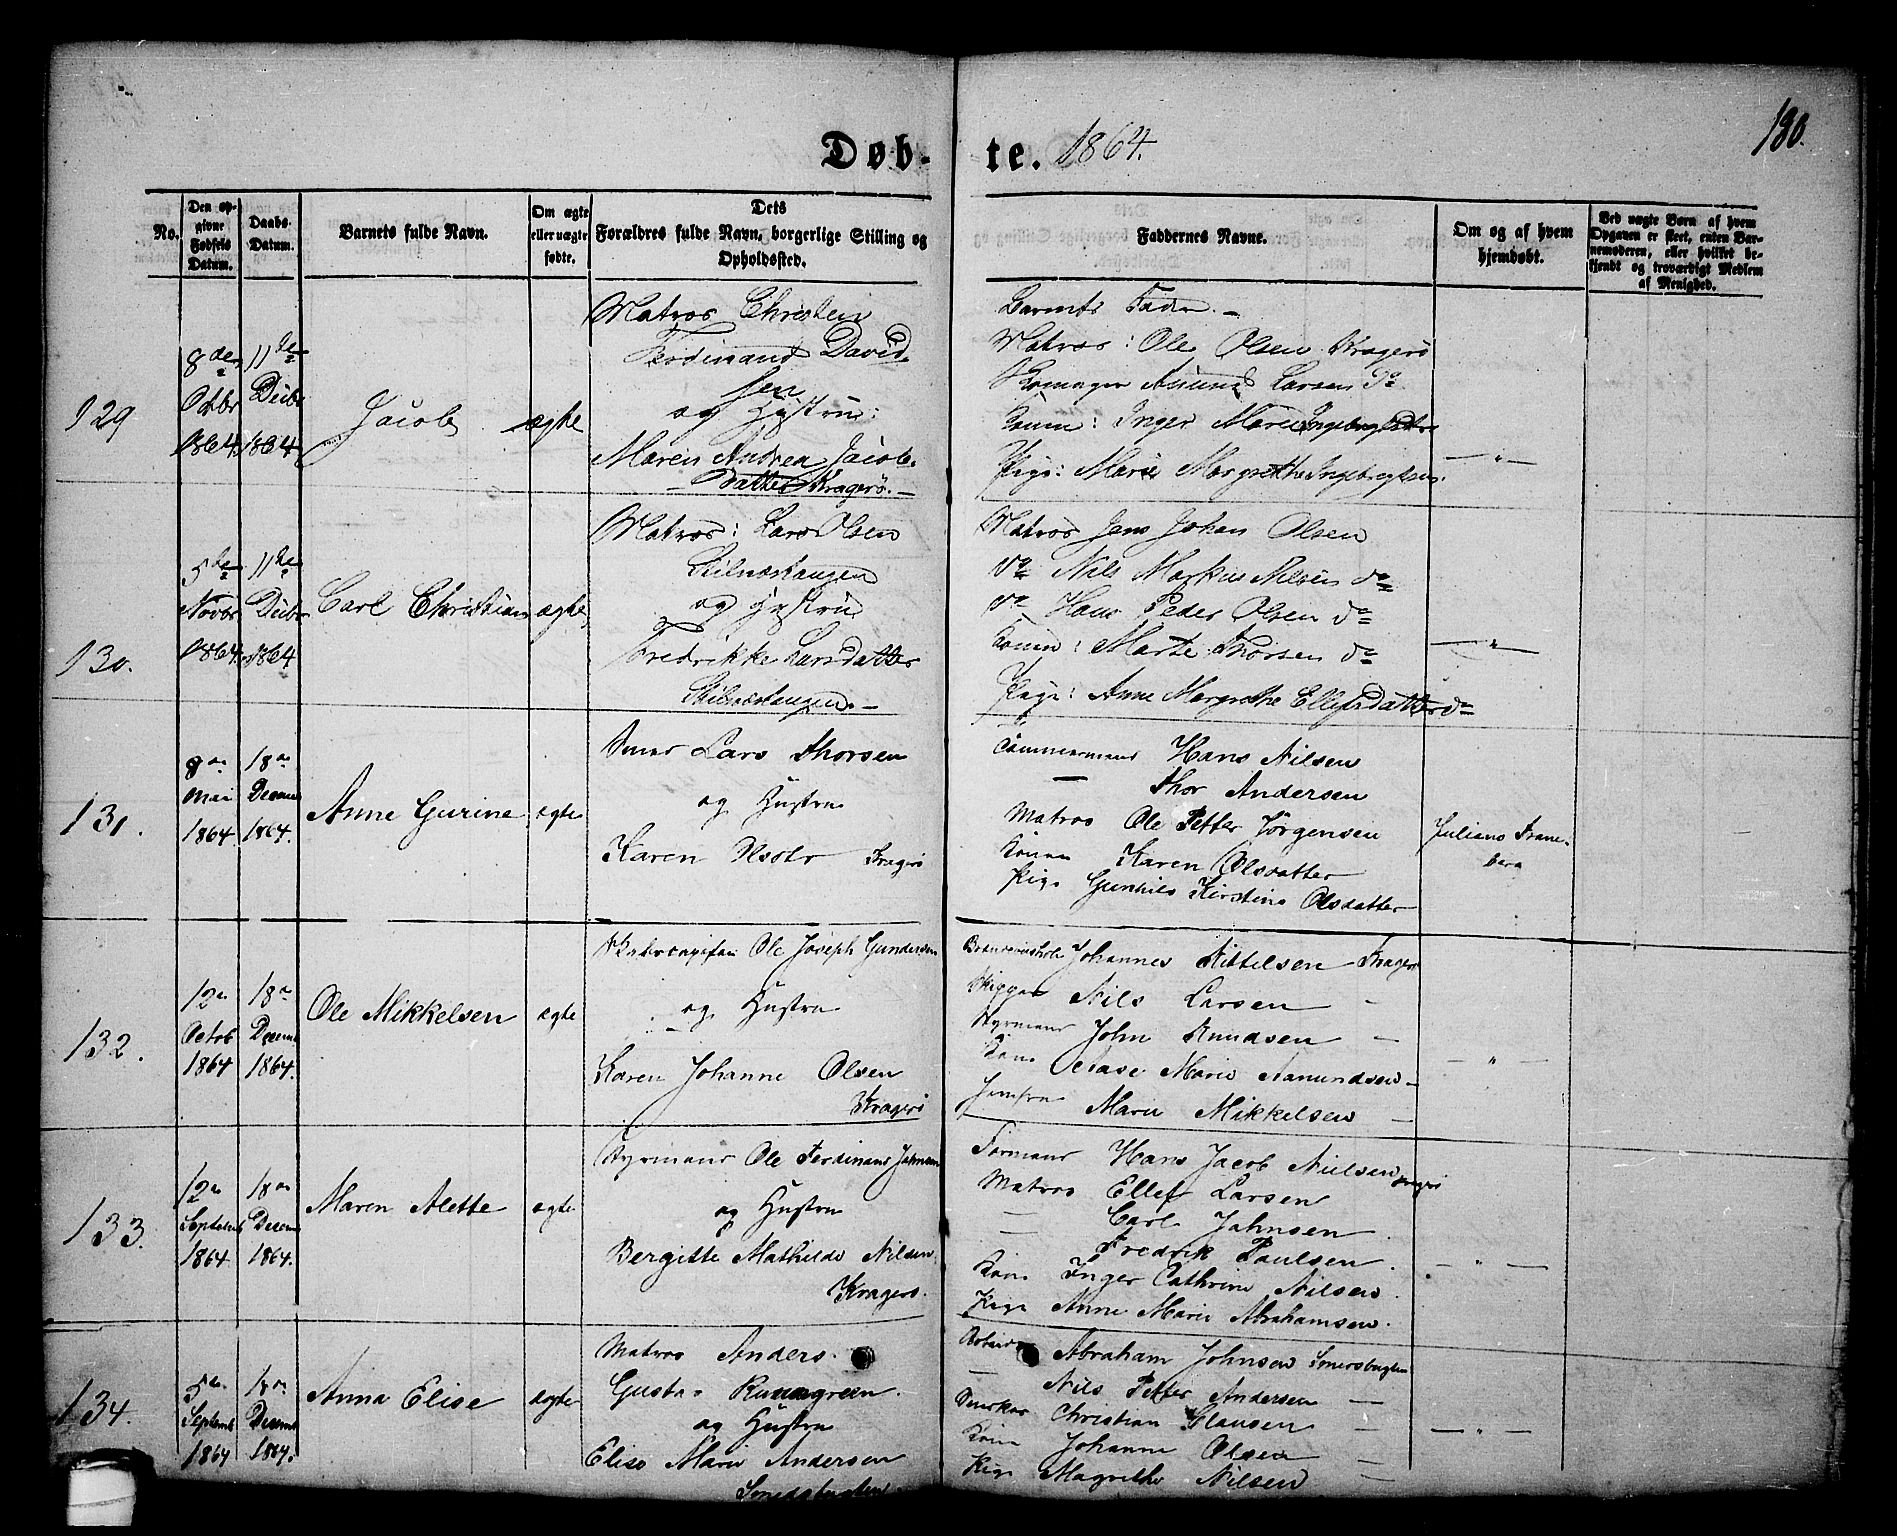 180.
Døb-te. 1864.
No.
Den op-
givne
Fødsels
Datum.
Daabs-
Datum.
Barnets fulde Navn.
Om ægte
eller uægte
født.
Dets
Forældres fulde Navn, borgerlige Stilling og
Opholdssted.
Faddernes Navne.
Om og af hvem
hjemdøbt.
Ved uægte Børn af hvem
Opgaven er skeet, enten Bar-
nemoderen, eller hvilket be-
kjendt og troværdigt Medlem
af Menighed.
129
8de
Octbr
1864
11te
Decbr
1864
Jacob
ægte
Matros Christen
Ferdinand David
sen
og Hustru:
Maren Andrea Jacob.
Datter Kragerø.—
Barnets Fader.—
Matros: Ole Olsen Kragerø
Larsen do
Konen: Inger Marie
Pige: Marie Margrethe Ingebregtsen
— " —
130.
5te
Novbr
1864.
11te
Decbr
1864
Carl Christian
ægte
Matros: Lars Olsen
og Hustru
Fredrikke Larsdatter
Matros Jens Johan Olsen
do Nils Markus Nilsen do
do Hans Peder Olsen do
Konen: Marte Thorsen do
Pige: Anne Margrethe Ellefsdatter do
— " —
131.
8de
Mai
1864.
18de
Decem
1864.
Anne Gurine
ægte
Lars Thorsen
og Hustru
Karen Olsdtr Kragerø
Tømmermand Hans Nilsen
— Thor Andersen
Matros Ole Petter Jørgensen
Konen Karen Olsdatter
Pige Gunhild Kirstine Olsdatter
132.
12te
Octob
1864
18de
Decemb
1864.
Ole Mikkelsen
ægte
Ole Joseph Gundersen
og Hustru
Karen Johanne Olsen
Kragerø
Johannes Kittelsen Kragerø
Skipper Nils Larsen —
Styrmand John Knudsen —
Kone Aase Marie Aamundsen —
Jomfru Marie Mikkelsen —
— " —
133.
12te
Septemb
1864
18de
Decemb
1864.
Maren Alette
ægte
Styrmand Ole Ferdinand Johnsen
og Hustru
Bergitte Mathilde Nilsen
Kragerø.
Formand Hans Jacob Nielsen Kragerø
Matros Ellef Larsen
— Carl Johnsen
Fredrik Paulsen.
Kone Inger Cathrine Nilsen.
Pige Anne Marie Abrahamsen.
— " —
134.
5te
Septemb
1864
18de
Decemb
1864.
Anna Elise
ægte
Matros Anders
Gustav
og Hustru
Elise Marie Andersen
Abraham Johnsen
— Nils Petter Andersen —
Christian Clausen —
Kone Johanne Olsen —
Pige Magrethe Nilsen —
— " —